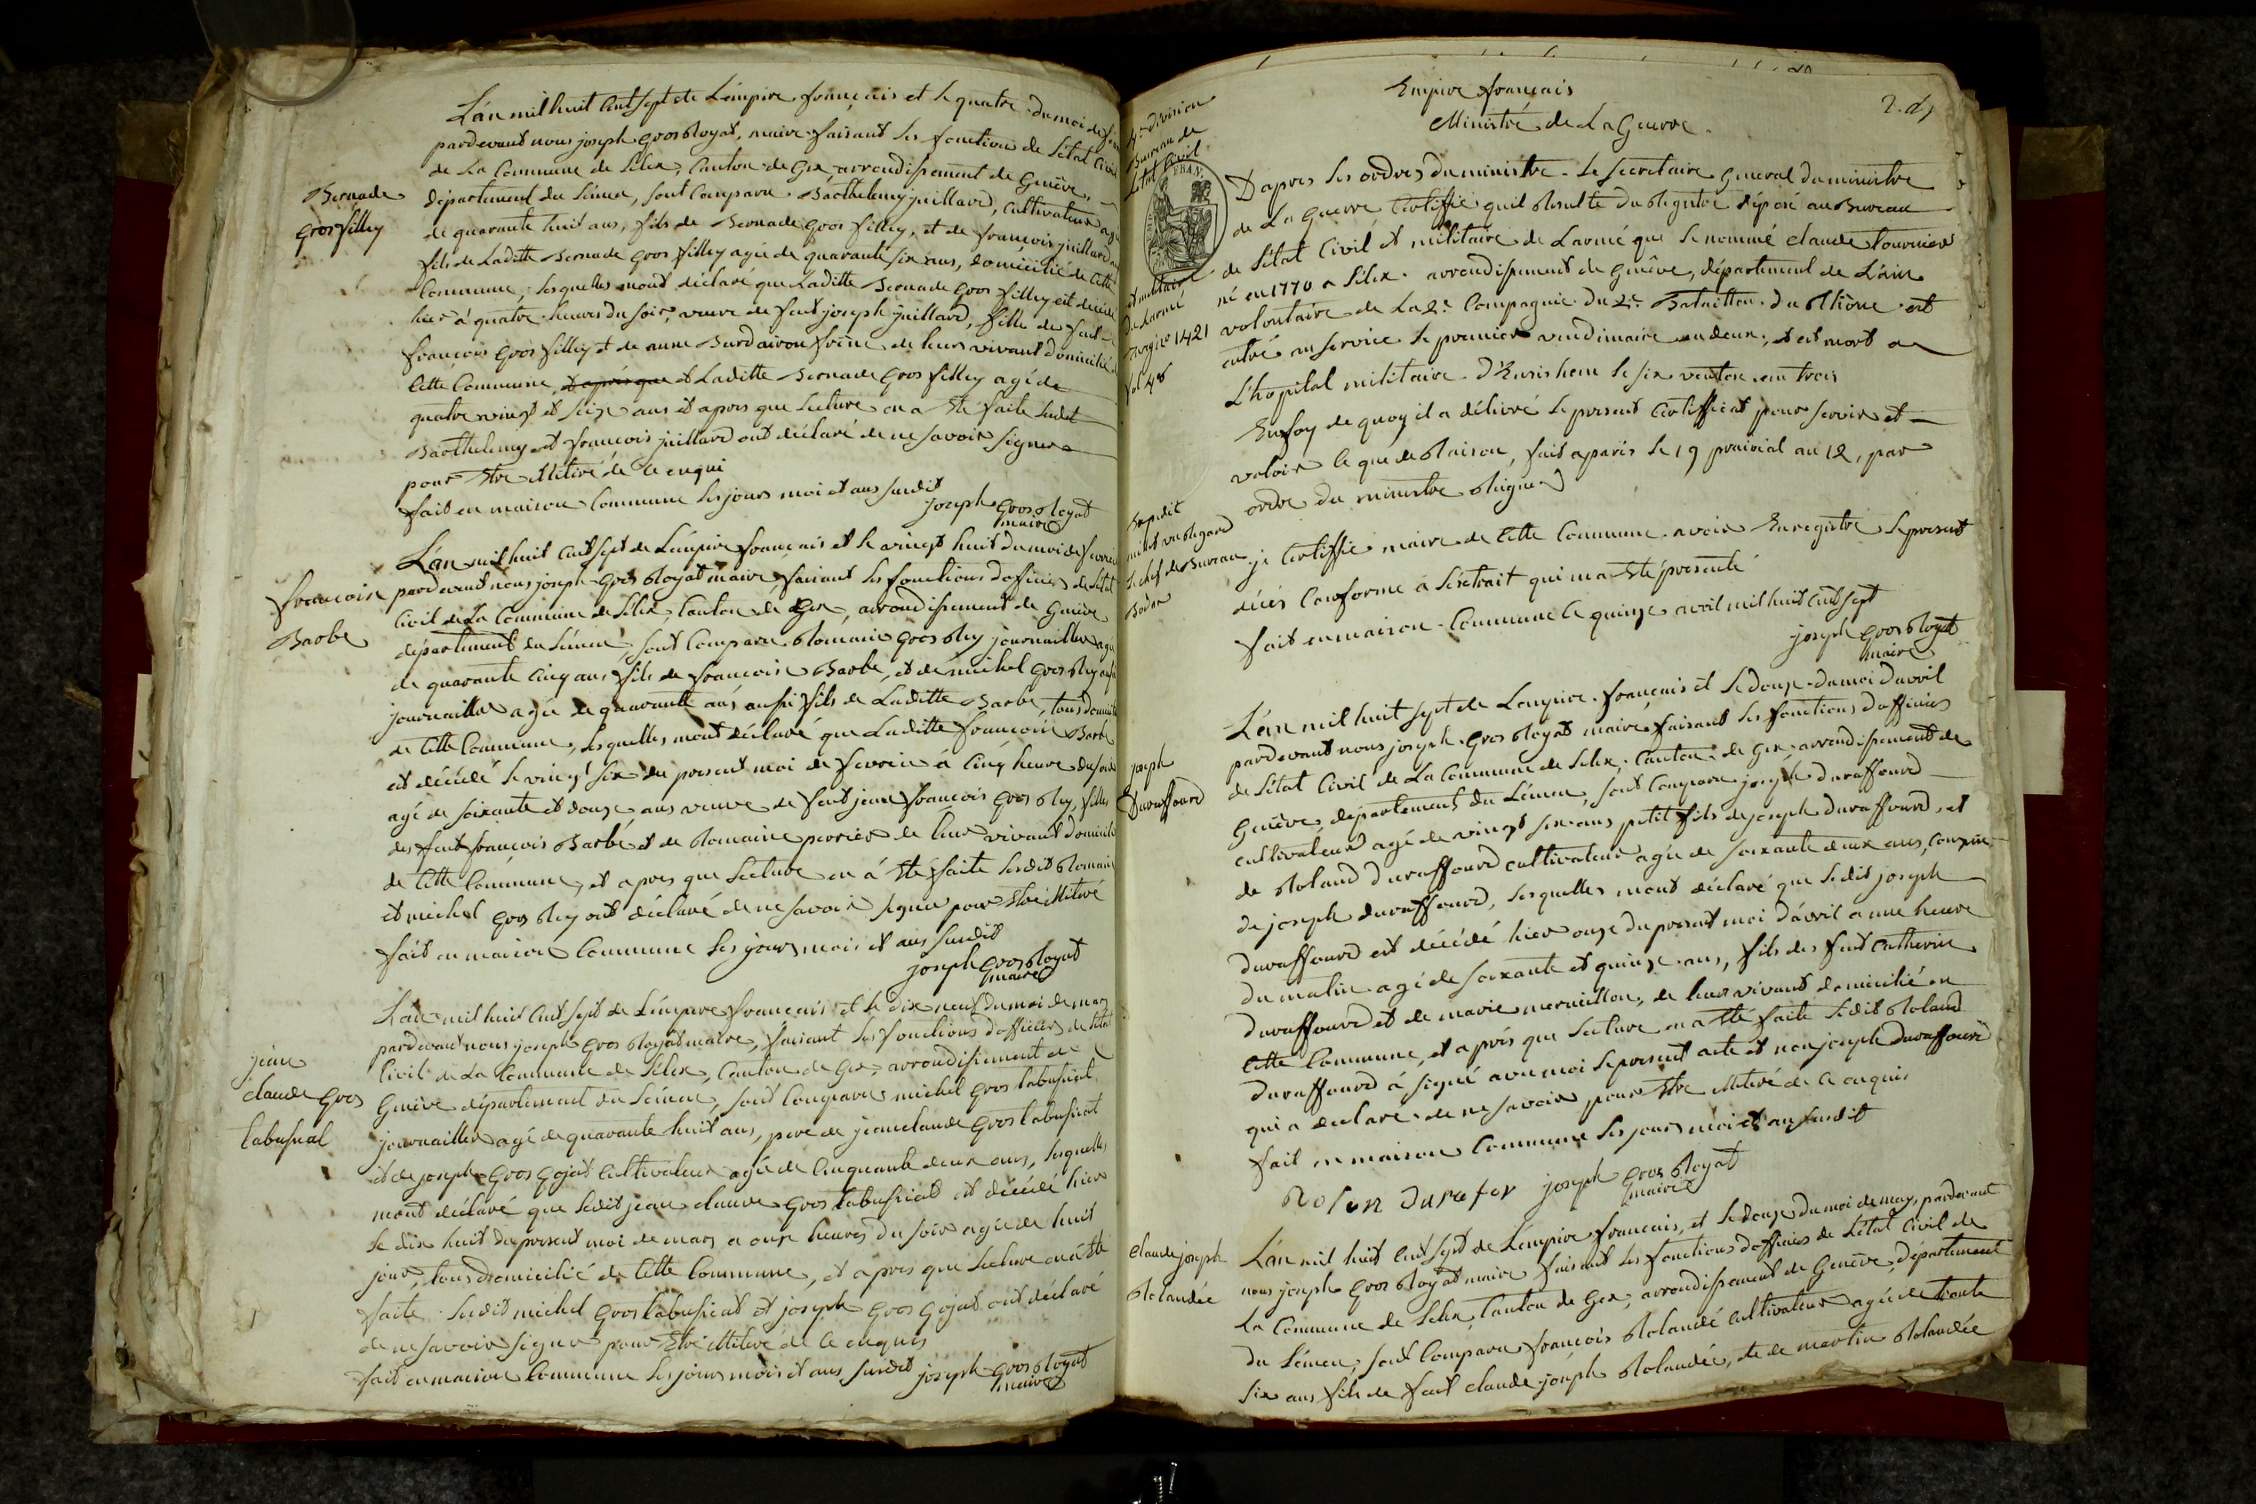 L'an mil huit cent sept de L'empire français et le quatre du moi de
pardevant nous joseph gros Royat, maire faisant les fonction de l'etat Civil
de La Commune de Lélex, Canton de Gex, arrondissement de Genève,
Bernade
gros filley
département du Léman, sont Comparu Barthelemy juillard, Cultivateur
de quarante huit ans, fils de Bernade gros filley, et de françois juillard
fils de Laditte Bernade gros filley agée de quarante six ans, domicilié de Cette
Commune, lesquelles mont déclaré que Laditte Bernade gros filley est décédé
hier à quatre heures du soir, veuve de feut joseph juillard, fille de feut
françois gros filley et de anne Burdairon frène de leur vivant domicilié
Cette Commune, et après que et Laditte Bernade gros filley agé de
quatre vingt et seize ans et apres que Lecture en a Eté faite Ledit
Barthelemy et françois juillard ont déclaré de ne savoir signer
pour Etre illitiré de ce enqui
fait en maison Commune les jours moi et ans susdit
joseph gros Royat
maire
L'an mil huit Cent sept de L'empire français et le vingt huit du moi de fevrier
françoise
Barbe
pardevant nous joseph gros Royat maire faisant les fonctions d'officier de L'etat
Civil de La Commune de Lélex, Canton de Gex, arrondissement de Genève
département du Léman, sont Comparu Romain gros Rey journaillier agé
de quarante Cinq ans fils de françoise Barbe, et de michel gros Rey aussi
journaillier agée de quarante ans aussi fils de Laditte Barbe, tous domicilié
de Cette Commune, lesquelles mont déclaré que Laditte françoise Barbe
est décédé le vingt six du present moi de fevrier à Cinq heure du soir
agé de soixante et douze ans veuve de feut jean françois gros Rey, filles
des feut françois Barbé et de Romaine perrier de leur vivant domicilié
de Cette Commune, et apres que Lecture en á Eté faite lesdit Romain
et michel gros Rey ont déclaré de ne savoir signer pour Etre illitiré
fait en maison Commune les jours mois et ans susdit
joseph gros Royat
maire
L'an mil huit Cent sept de L'empire français et le dix neuf du moi de mars
pardevant nous joseph gros Royat maire, faisant les fonctions d'officier de l'etat
jean
claude gros
labusrial
Civil de La Commune de Lélex, Canton de Gex, arrondissement de
Genève département du Léman, sont Comparu michel gros labusrial
journaillier agé de quarante huit ans, pere de jean claude gros labusrial
et de joseph gros gojat cultivateur agée de Cinquante deux ans, lesquelles
mont déclaré que ledit jean claude gros labusriat est décédé hier
le dix huit du present moi de mars a onze heures du soir agée de huit
jour, tous domicilié de Cette Commune, et apres que Lecture en á Eté
faite Lesdit michel gros labusriat et joseph gros gojat ont déclaré
de ne savoir signer pour Etre illitéré de ce enquis
fait en maison Commune les jours mois et ans susdit joseph gros Royat
maire
Empire français
Ministré de La Guerre
4e division
Bureau de
Letat Civil
FRAN.
et militaire
de Larmé
Regire 1421
fol 48
D'apres les ordres du ministre Le secretaire General du ministre
de La Guerre Certiffie quil Résulte du Régistre déposé au Bureau
de L'état Civil et militaire de Larmé que Le nommé claude tournier
né en 1770 a Lélex, arrondissement de Genêve, département de L'ain
volontaire de La 2e Compagnie du 2e Bataillon du Rhône est
entré au service le premier vendimaire an deux, et est mort a
L'hopital militaire d'Ensishem le six ventose an trois
En foy de quoy il a délivré le present Certifficat pour servir et
valoir Ce que de Raison, fait a paris le 19 prairial an 12, par
ordre du ministre signé
Expedit
Le chef de Bureau
Bodar
je Certiffie maire de Cette Commune avoir Enregistré le present
décès Conforme a L'extrait qui ma Eté presenté
fait en maison Commune le quinze avril mil huit Cent sept
joseph gros Royat
maire
L'an mil huit sept de Lempire français et le douze du moi d'avril
pardevant nous joseph gros Royat maire faisant les fonctions d'officier
joseph
Duraffourd
de l'état Civil de La Commune de Lélex, Canton de Gex arrondissement de
Genêve, département du Léman, sont Comparu joseph duraffourd
cultivateur agé de vingt six ans petit fils de joseph duraffourd, et
de Roland duraffourd cultivateur agée de soixante deux ans, Cousin
de joseph duraffourd, lesquelles mont déclaré que ledit joseph
duraffourd est décédé hier onze du present moi d'avril a une heure
du matin agé de soixante et quinze ans, fils des feut Catherin
duraffourd et de marie mermillon, de leur vivant domicilié en
Cette Commune, et après que Lecture en a Eté faite Ledit Roland
duraffourd á signé avec moi le present acte et non joseph duraffourd
qui a declaré de ne savoir pour Etre illitiré de ce enquis
fait en maison Commune les jours moi et an susdit
Rolan durafor joseph gros Royat
maire
claude joseph
Rolandée
L'an mil huit Cent sept de L'empire français, et le douze du moi de may, pardevant
nous joseph gros Royat maire faisant les fonctions d'officier de L'état Civil de
La Commune de Lélex, Canton de Gex, arrondissement de Genève, département
du Léman, sont Comparu françois Rolandé cultivateur agée de trente
six ans fils de feut claude joseph Rolandée, et de martin Rolandée